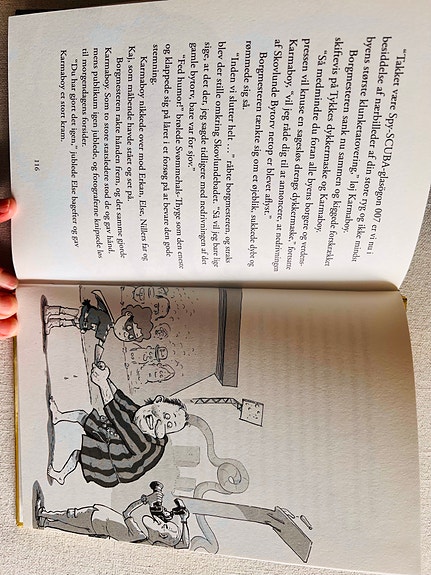 "Takket være Spy-SCUBA-glasögon 007 er vi nu i
besiddelse af nærbilleder af din store ryg og ikke mindst
byens største klunkeratovering," løj Karmaboy.
Borgmesteren sank nu sammen og kiggede forskrækket
skiftevis på Tykkes dykkermaske og Karmaboy.
"Så medmindre du foran alle byens borgere og verdens-
pressen vil knuse en sagesløs drengs dykkermaske," fortsatte
Karmaboy, "vil jeg råde dig til at annoncere, at nedrivningen
af Skovlunde Bytorv netop er blevet aflyst."
Borgmesteren tænkte sig om et øjeblik, sukkede dybt og
rømmede sig.
"Inden vi slutter helt . . ." råbte borgmesteren, og straks
blev der stille omkring Skovlundebadet. "Så vil jeg bare lige
sige, at det der, jeg sagde tidligere med nedrivningen af det
gamle bytorv, bare var for sjov."
"Fed humor!" brølede Svømmehals-Thyge som den eneste
og klappede sig på låret i et forsøg på at bevare den gode
stemning.
Karmaboy nikkede over mod Erkan, Else, Nillers far og
Kaj, som måbende havde stået og set på.
Borgmesteren rakte hånden frem, og det samme gjorde
Karmaboy. Som to store statsledere stod de og gav hånd,
mens publikum igen jublede, og fotograferne knipsede løs
til morgendagens forsider.
"Du har gjort det igen," jublede Else bagefter og gav
Karmaboy et stort kram.
116